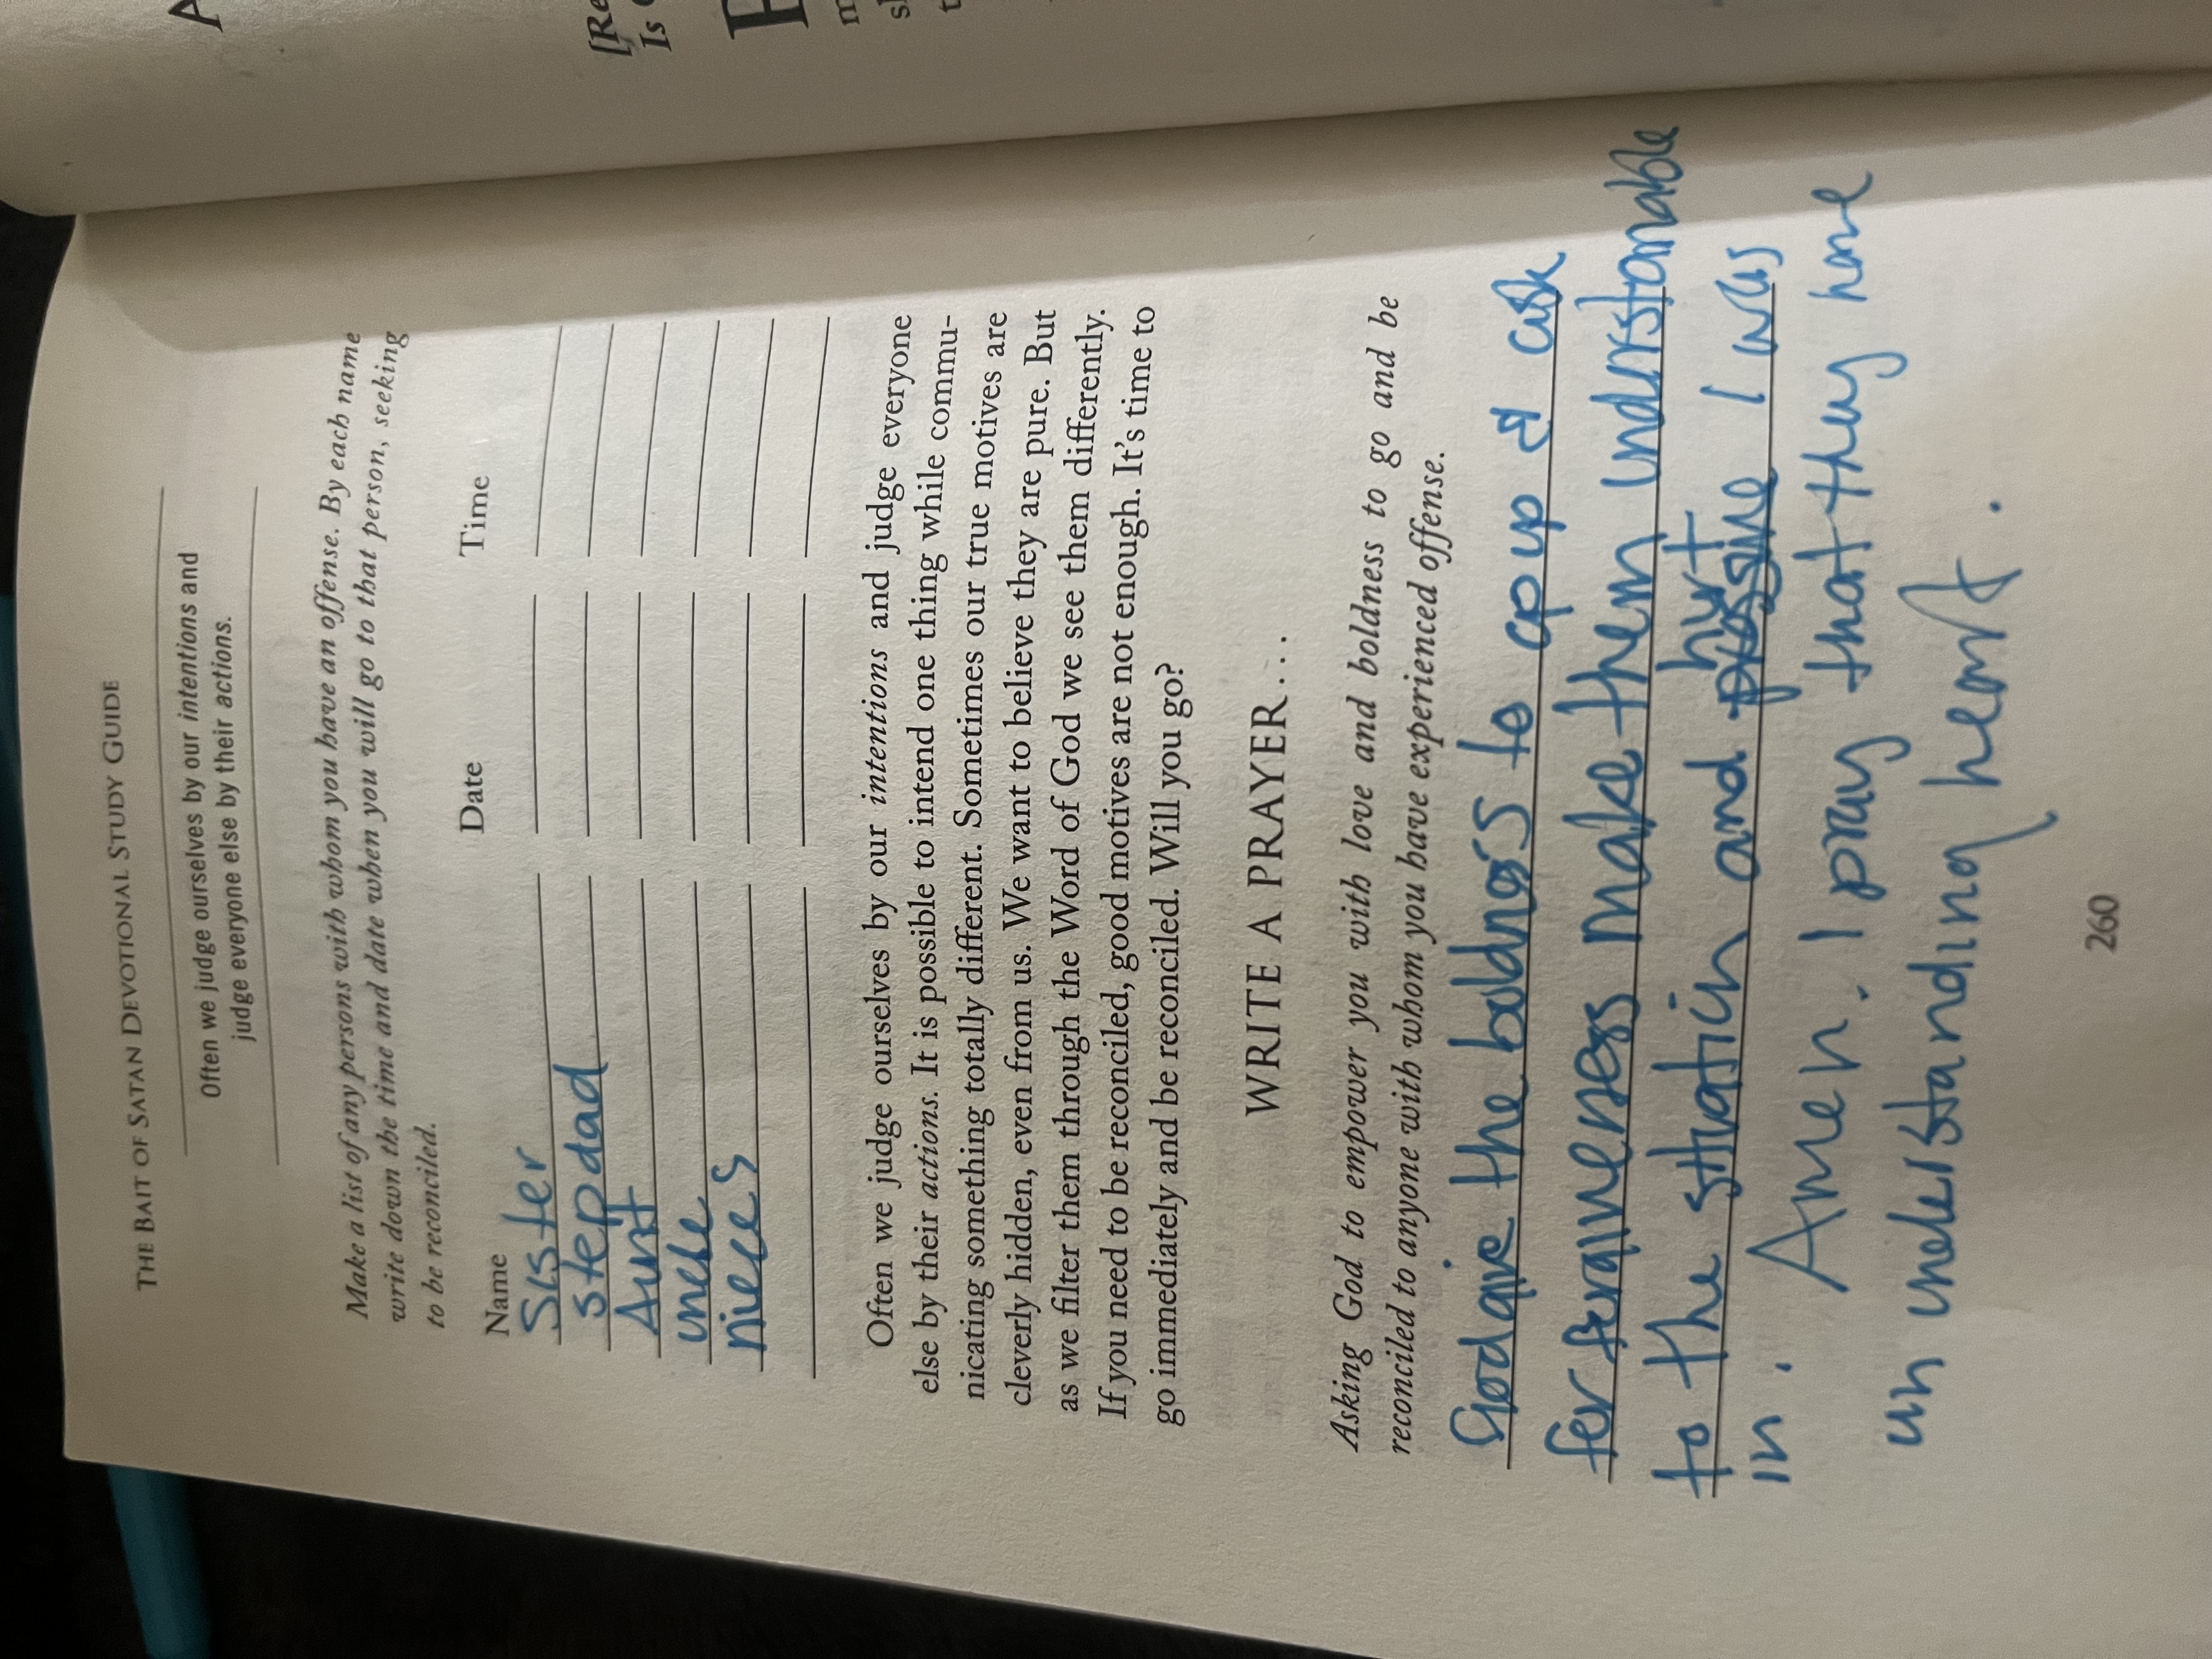 THE BAIT OF SATAN DEVOTIONAL STUDY GUIDE
Often we judge ourselves by our intentions and
judge everyone else by their actions.
Make a list of any persons with whom you have an offense. By each name
write down the time and date when you will go to that person, seeking
to be reconciled.
Name Date Time
Sister
stepdad
Aunt
uncle
nieces
Often we judge ourselves by our intentions and judge everyone
else by their actions. It is possible to intend one thing while commu-
nicating something totally different. Sometimes our true motives are
cleverly hidden, even from us. We want to believe they are pure. But
as we filter them through the Word of God we see them differently.
If you need to be reconciled, good motives are not enough. It's time to
go immediately and be reconciled. Will you go?
WRITE A PRAYER...
Asking God to empower you with love and boldness to go and be
reconciled to anyone with whom you have experienced offense.
God give the boldness to go up & ask
for forgiveness make them understanable
to the situation and hurt I was
in. Amen. I pray that they have
un understanding heart.
260
[Re
Is